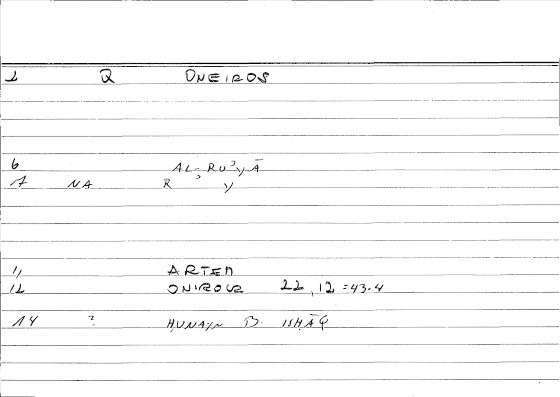 1 Q ONEIROS
6 AL-RUʾYĀ
7 NA R ʾ Y
11 ARTEM
12 ONIROCR 22,12=43.4
14 ? ḤUNAYN B. ISḤĀQ